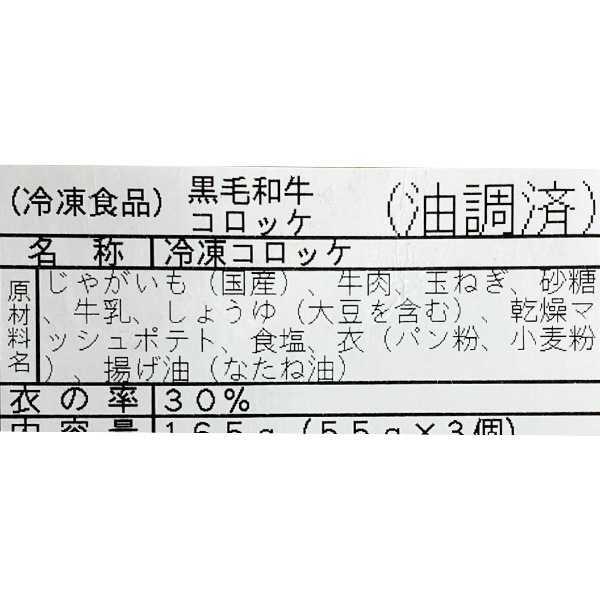 (冷凍食品) 黒毛和牛コロッケ (油調済)
名称 冷凍コロッケ
原材料名 じゃがいも(国産)、牛肉、玉ねぎ、砂糖
、牛乳、しょうゆ(大豆を含む)、乾燥マ
ッシュポテト、食塩、衣(パン粉、小麦粉
)、揚げ油(なたね油)
衣の率 30%
内容量 165g(55g×3個)